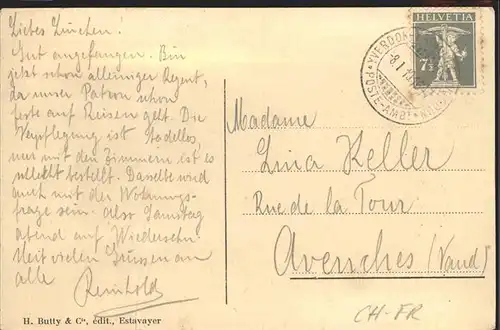 Liebes Linchen!
Gut angefangen. Bin
jetzt schon alleiniger Regent,
da unser Patron schon
feste auf Reisen geht. Die
Verpflegung ist tadellos,
nur mit den Zimmern ist es
schlecht bestellt. Dasselbe wird
auch mit der Wohnungs-
frage sein. Also Samstag
abend auf Wiedersehn.
Mit vielen Grüssen an
alle Reinhold
H. Butty & Cie, édit., Estavayer
HELVETIA
7½
YVERDON
POSTE-AMBT
Madame
Lina Keller
Rue de la Tour
Avenches (Vaud)
CH-FR